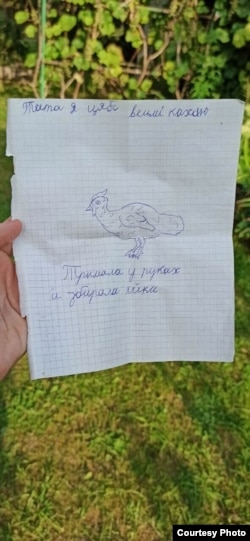 Тата я цябе вельмі кахаю
Трымала у руках
и збирала яйка
Courtesy Photo